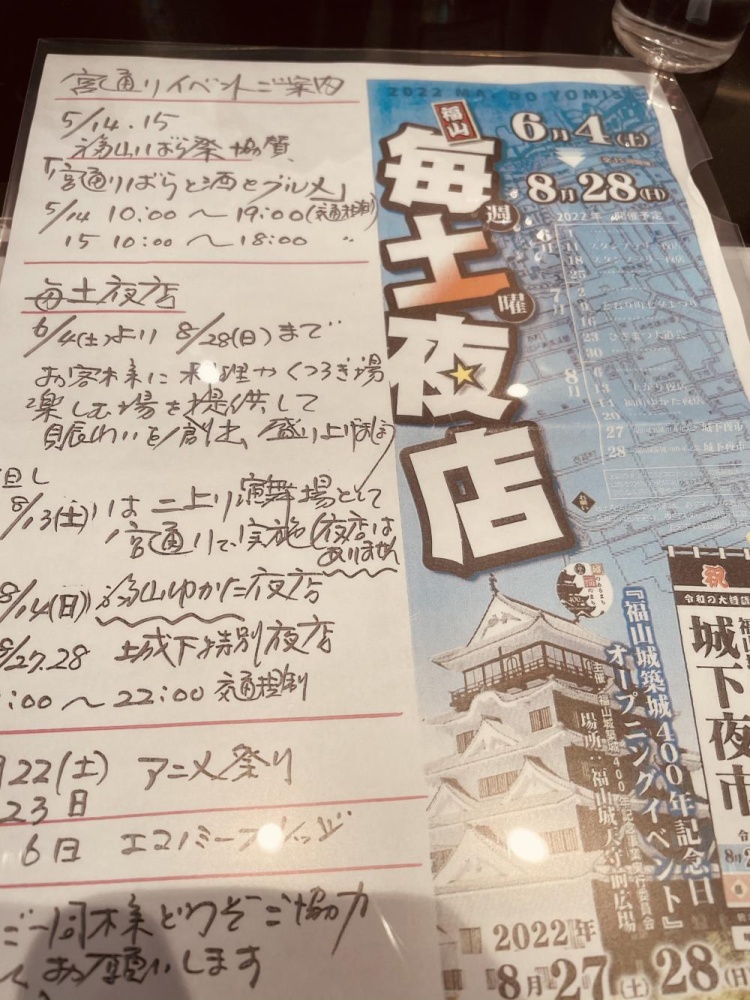 宮通りイベントご案内
5/14.15
福山ばら祭協賛
「宮通りばらと酒とグルメ」
5/14 10:00〜19:00(交通規制)
15 10:00〜18:00 〃
毎土夜店
6/4(土)より 8/28(日)まで
お客様に料理やくつろぎ場
楽しむ場を提供して
賑わいを創出、盛り上げましょう
但し
8/13(土)は二上り演舞場として
宮通りで実施(夜店は
ありません
8/14(日)福山ゆかた夜店
8/27.28 土城下特別夜店
:00〜22:00 交通規制
22(土) アニメ祭り
23日
6日 エコノミー
ご一同様どうぞご協力
お願いします
2022 MAIDO YOMIS
福山
毎週土曜夜店
6月4(土)
8月28(日)
2022年 開催予定
6月
11
18
25
7月
2
9
16
23
30
8月
6
13
14
20
27
28
『福山城築城400年記念日
オープニングイベント』
場所:福山城天守前広場
2022年
8月27(土)28(日)
祝
令和の大普請
城下夜市